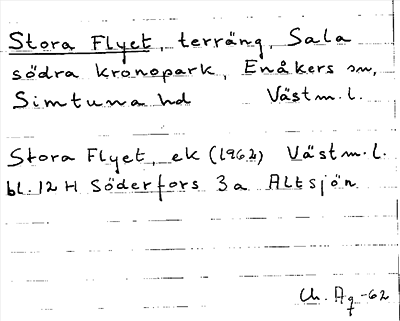 Stora Flyet, terräng, Sala
södra kronopark, Enåkers sn,
Simtuna hd Västm. l.
Stora Flyet, ek (1962) Västm. l.
bl. 12 H Söderfors 3 a Altsjön
Ch. Ag -62